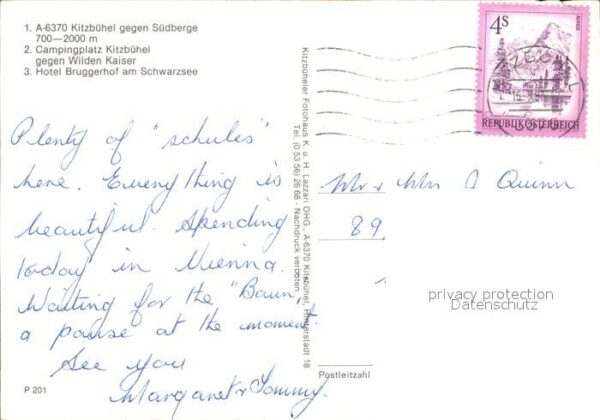 1. A-6370 Kitzbühel gegen Südberge
700—2000 m
2. Campingplatz Kitzbühel
gegen Wilden Kaiser
3. Hotel Bruggerhof am Schwarzsee
4 S
ALMSEE
REPUBLIK ÖSTERREICH
Plenty of "schules"
here. Everything is
beautiful. Spending
today in Vienna.
Waiting for the "Baun,"
a pause at the moment.
See you
Margaret & Tommy.
P 201
Kitzbüheler Fotohaus K. u. H. Lazzari OHG., A-6370 Kitzbühel, Hinterstadt 18
Tel. (0 53 56) 26 68 · Nachdruck verboten
Mr & Mrs D Quinn
89
privacy protection
Datenschutz
Postleitzahl